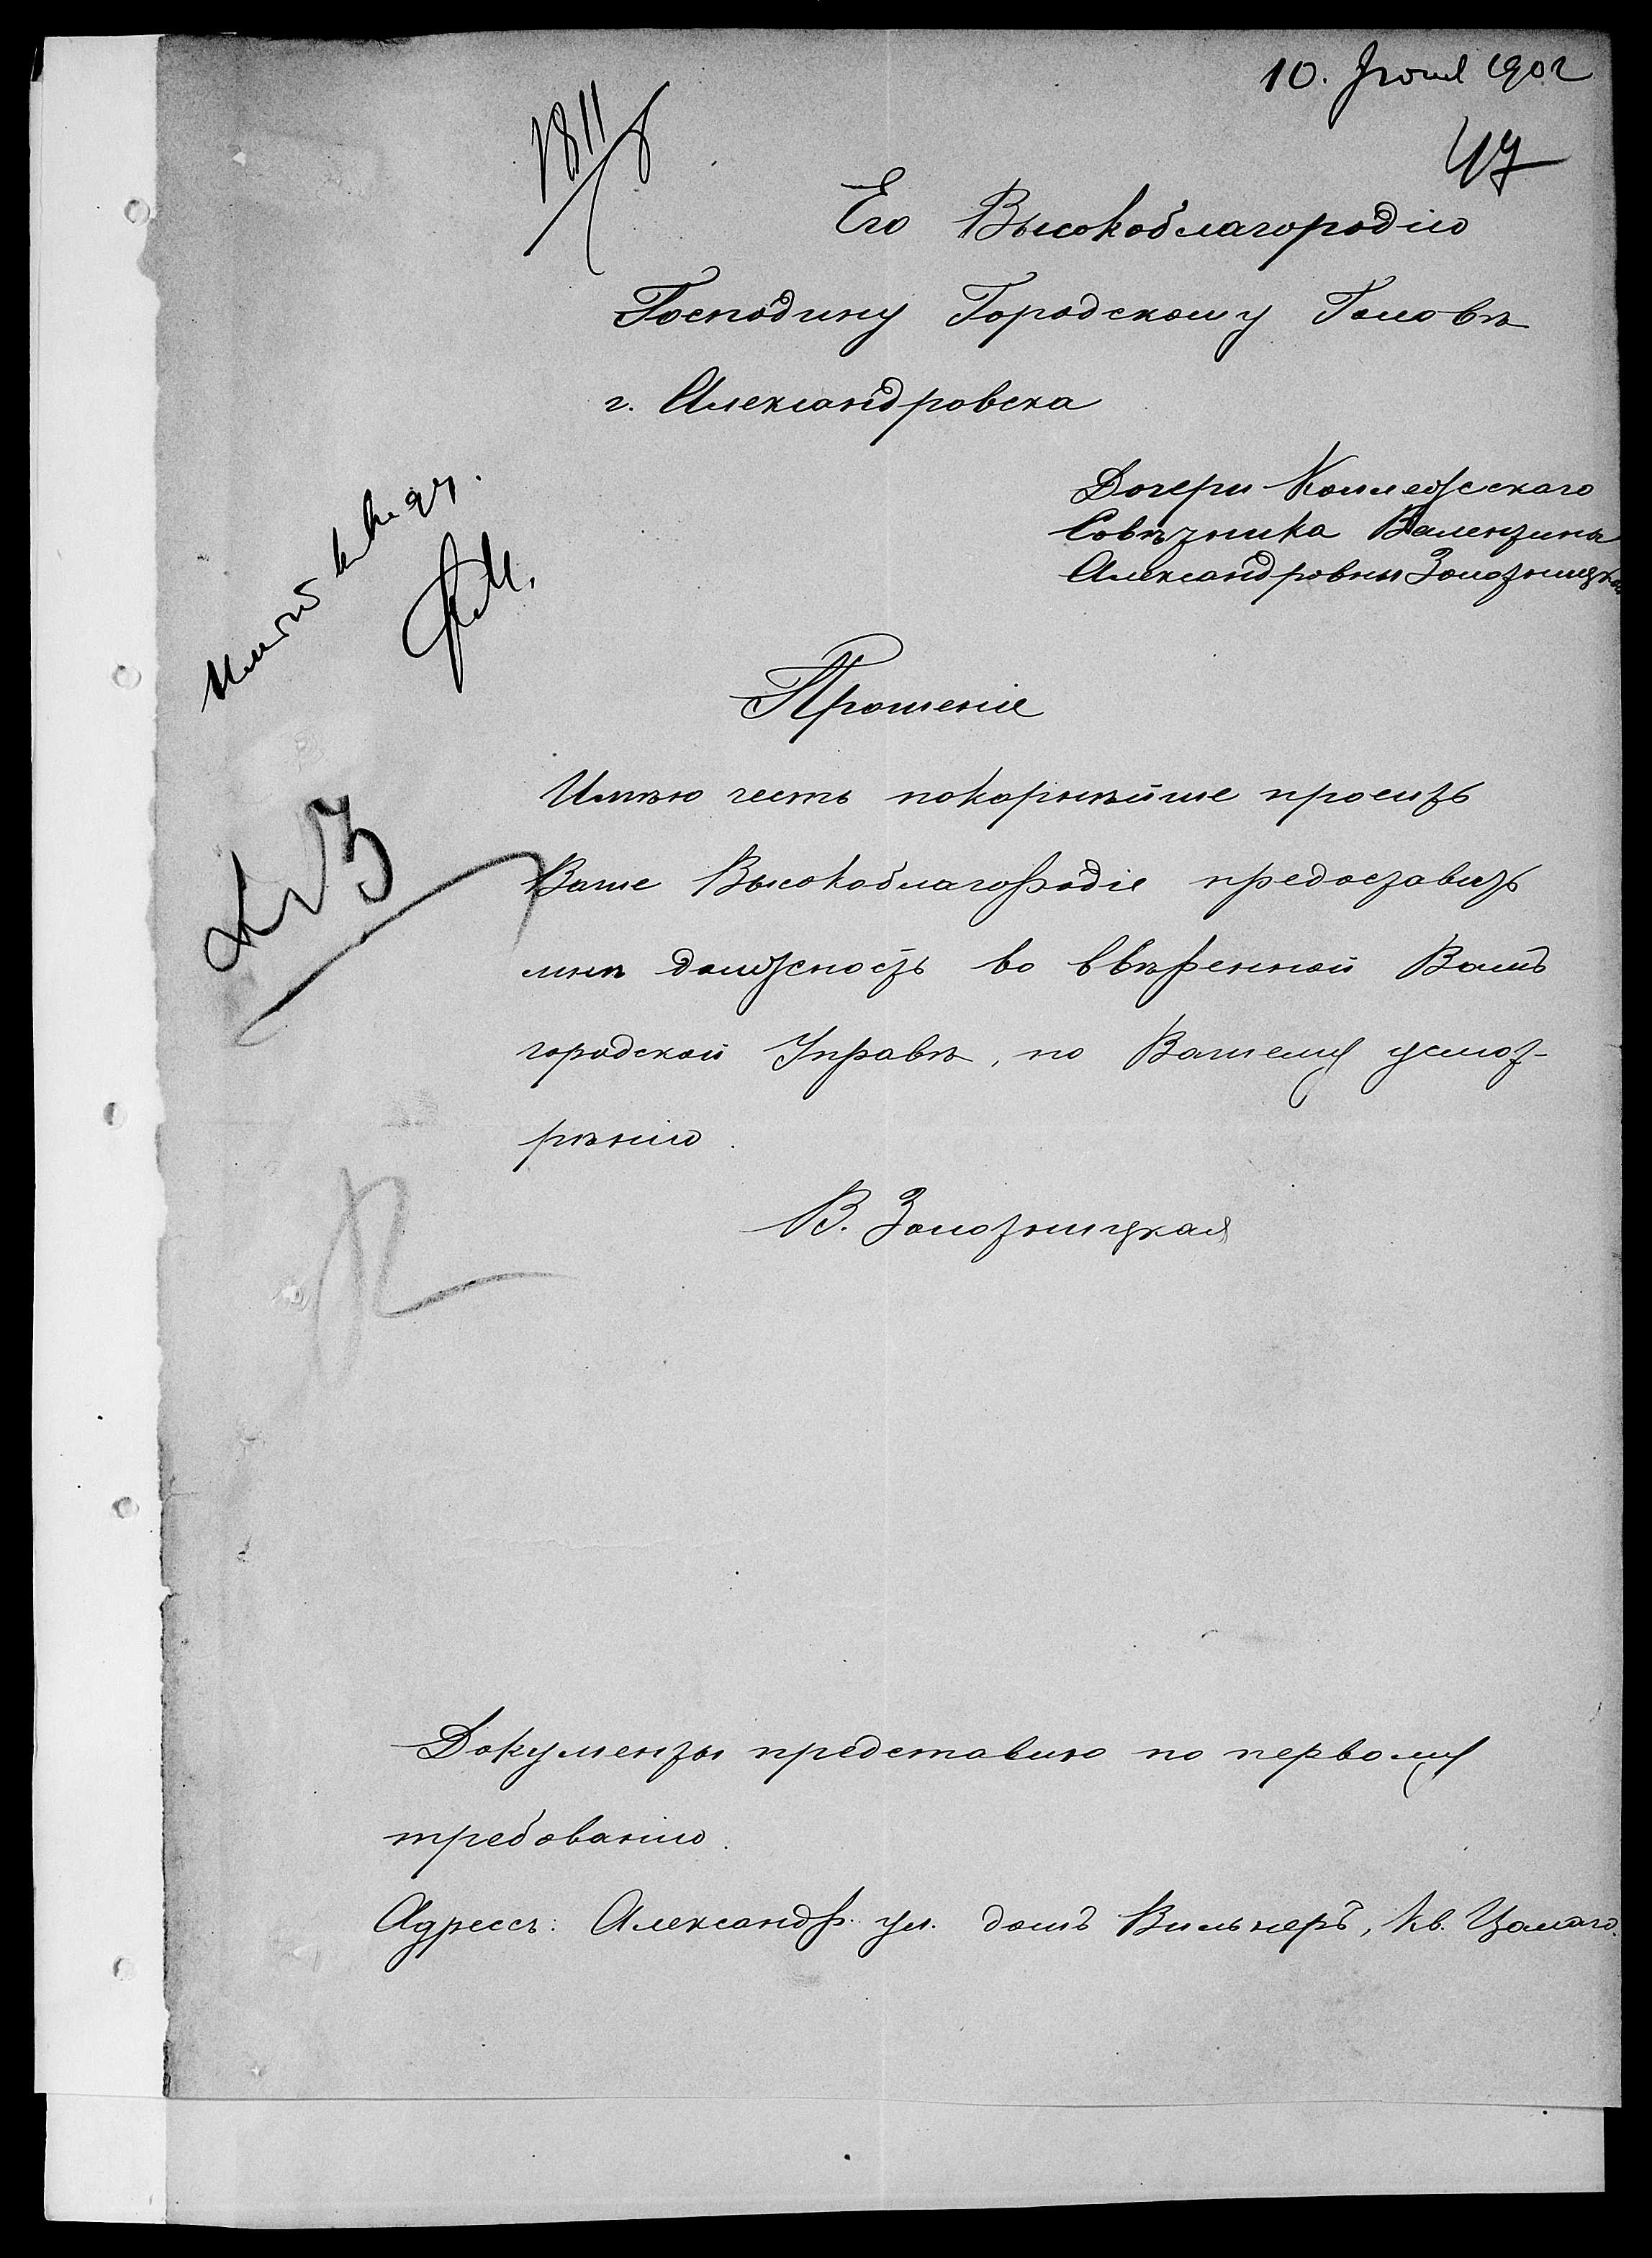 10. Іюня 1902
47
1811
Его Высокоблагородію
Господину Городскому Головѣ
г. Александровска
Дочери Коллежскаго
Совѣтника Валентины
Александровны Золотницкой
Прошеніе
Имѣю честь покорнѣйше просить
Ваше Высокоблагородіе предоставить
мнѣ должность во ввѣренной Вамъ
городской Управѣ, по Вашему усмот-
рѣнію.
В. Золотницкая
Документы представлю по первому
требованію.
Адрессъ: Александр. ул. домъ Вильнеръ, кв.